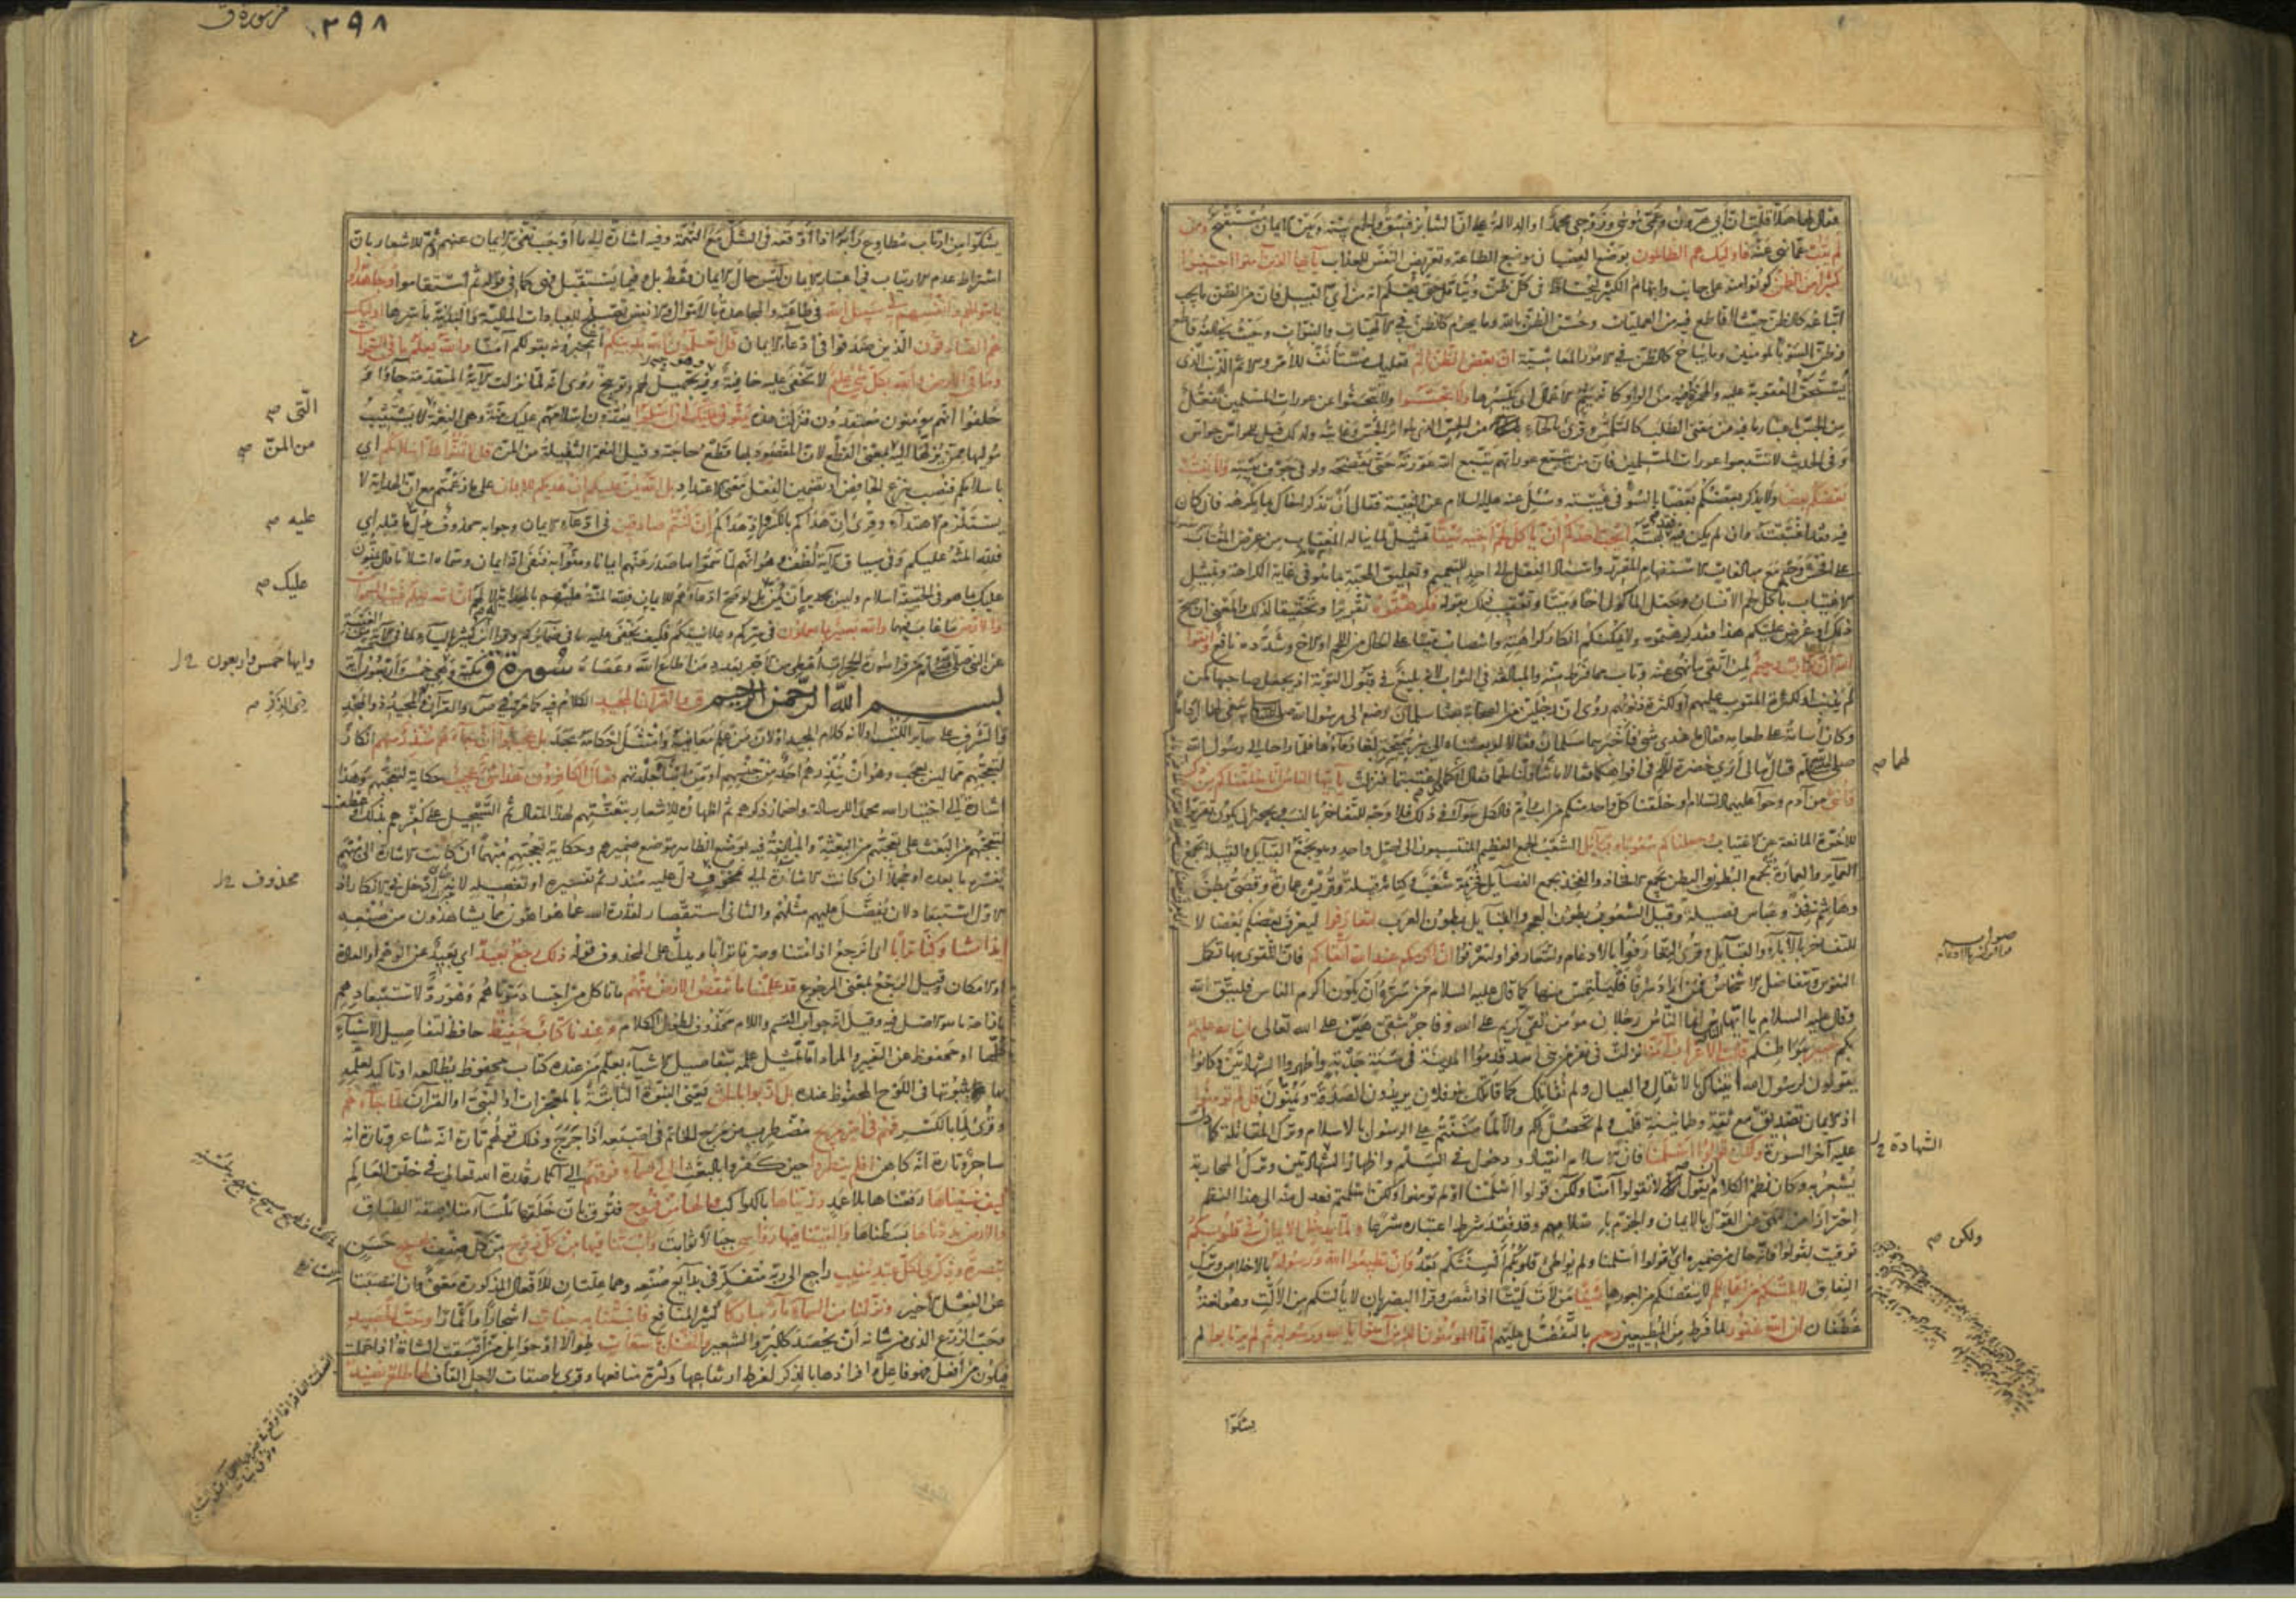 فقال لها هلا قلت ان أبي هرون وعمي موسى وزوجي محمد او الدلالة على ان التنابز فسق والجمع بينه وبين الايمان مستقبح ومن
لم يتب عما نهى عنه فاولئك هم الظالمون بوضع العصيان موضع الطاعة وتعريض النفس للعذاب يا ايها الذين آمنوا اجتنبوا
كثيرا من الظن كونوا منه على جانب وابهام الكثير ليحتاط في كل ظن ويتأمل حتى يعلم انه من أي القبيل فان من الظن ما يجب
اتباعه كالظن حيث لا قاطع فيه من العمليات وحسن الظن بالله وما يحرم كالظن في الالهيات والنبوات وحيث يخالفه قاطع
وظن السوء بالمؤمنين وما يباح كالظن في الامور المعاشية ان بعض الظن اثم تعليل مستأنف للأمر والاثم الذنب الذي
يستحق العقوبة عليه والهمزة فيه من الواو كانه يثم الاعمال اي يكسرها ولا تجسسوا ولا تبحثوا عن عورات المسلمين تفعل
من الجس باعتبار ما فيه من معنى الطلب كالتلمس وقرئ بالحاء من الحس الذي هو اثر الجس وغايته ولذلك قيل للحواس جواس
وفي الحديث لا تتبعوا عورات المسلمين فان من تتبع عوراتهم تتبع الله عورته حتى يفضحه ولو في جوف بيته ولا يغتب
بعضكم بعضا ولا يذكر بعضكم بعضا بالسوء في غيبته وسئل عنه عليه السلام عن الغيبة فقال ان تذكر اخاك بما يكرهه فان كان
فيه فقد اغتبته وان لم يكن فيه فقد بهته ايحب احدكم ان يأكل لحم اخيه ميتا تمثيل لما يناله المغتاب من عرض المغتاب
على افحش وجه مع مبالغات الاستفهام المقرر واسناد الفعل الى احد للتعميم وتعليق المحبة بما هو في غاية الكراهة وتمثيل
الاغتياب بأكل لحم الانسان وجعل المأكول اخا وميتا وتعقيب ذلك بقوله فكرهتموه تقريرا وتحقيقا لذلك والمعنى ان صح
ذلك او عرض عليكم هذا فقد كرهتموه ولا يمكنكم انكار كراهته وانتصاب ميتا على الحال من اللحم او الاخ وشدده نافع واتقوا
الله ان الله تواب رحيم لمن اتقى ما نهى عنه وتاب مما فرط منه والمبالغة في التواب لانه بليغ في قبول التوبة اذ يجعل صاحبها كمن
لم يذنب او لكثرة المتوب عليهم او لكثرة ذنوبهم روي ان رجلين من الصحابة بعثا سلمان رضه الى رسول الله صلى يبغي لهما اداما
وكان اسامة على طعامه فقال ما عندي شئ فأخبرهما سلمان فقالا لو بعثناه الى بئر سميحة لغار ماؤها فلما راحا الى رسول الله
صلى الله عليه وسلم قال ما لي أرى خضرة اللحم في افواهكما فقالا ما تناولنا لحما فقال انكما قد اغتبتما فنزلت يا ايها الناس انا خلقناكم من ذكر
وانثى من آدم وحوا عليهما السلام او خلقنا كل واحد منكم من اب وام فالكل سواء في ذلك فلا وجه للتفاخر بالنسب ويجوز ان يكون تقريرا
للأخوة المانعة عن الاغتياب وجعلناكم شعوبا وقبائل الشعب الجمع العظيم المنتسبون الى اصل واحد وهو يجمع القبايل والقبيلة تجمع
العماير والعمارة تجمع البطون والبطن تجمع الافخاذ والفخذ يجمع الفصايل فخزيمة شعب وكنانة قبيلة وقريش عمارة وقصي بطن
وهاشم فخذ وعباس فصيلة وقيل الشعوب بطون العجم والقبايل بطون العرب لتعارفوا ليعرف بعضكم بعضا لا
للتفاخر بالآباء والقبايل وقرئ لتعارفوا بالادغام ولتتعارفوا ولتعرفوا ان اكرمكم عند الله اتقاكم فان التقوى بها تكمل
النفوس وتتفاضل الاشخاص فمن اراد شرفا فليلتمس منها كما قال عليه السلام من سره ان يكون اكرم الناس فليتق الله
وقال عليه السلام يا ايها الناس انما الناس رجلان مؤمن تقي كريم على الله وفاجر شقي هين على الله تعالى ان الله عليم
بكم خبير ببواطنكم قالت الاعراب آمنا نزلت في نفر من بني اسد قدموا المدينة في سنة جدبة واظهروا الشهادتين وكانوا
يقولون لرسول الله اتيناك بالاثقال والعيال ولم نقاتلك كما قاتلك بنو فلان يريدون الصدقة ويمنون قل لم تؤمنوا
اذ الايمان تصديق مع ثقة وطمانينة قلب ولم تحصل لكم والا لما مننتم على الرسول بالاسلام وترك المقاتلة كما دل
عليه آخر السورة ولكن قولوا اسلمنا فان الاسلام انقياد ودخول في السلم واظهار الشهادتين وترك المحاربة
يشعر به وكان نظم الكلام ان يقول لا تقولوا آمنا ولكن قولوا اسلمنا اذ لم تؤمنوا ولكن اسلمتم فعدل منه الى هذا النظم
احترازا من النهي عن القول بالايمان والجزم باسلامهم وقد فقد شرط اعتباره شرعا ولما يدخل الايمان في قلوبكم
توقيت لقولوا فانه حال من ضميره اي قولوا اسلمنا ولم يواطئ قلوبكم ألسنتكم بعد وان تطيعوا الله ورسوله بالاخلاص وترك
النفاق لا يلتكم من اعمالكم لا ينقصكم من اجورها شيئا من لات ليتا اذا نقص وقرأ البصريان لا يألتكم من الألت وهو لغة
غطفان ان الله غفور لما فرط من المطيعين رحيم بالتفضل عليهم انما المؤمنون الذين آمنوا بالله ورسوله ثم لم يرتابوا لم
يشكوا
لهما صح
الشهادة
ولكن صح
من سورة ق
٢٩٨
يشكوا من ارتاب مطاوع رابه اذا اوقعه في الشك مع التهمة وفيه اشارة الى ما اوجب نفي الايمان عنهم وثم للاشعار بان
اشتراط عدم الارتياب في اعتبار الايمان ليس حال الايمان فقط بل وفيما يستقبل فهي كما في قوله ثم استقاموا وجاهدوا
باموالهم وانفسهم في سبيل الله في طاعته والمجاهدة بالاموال والانفس تصلح للعبادات المالية والبدنية بأسرها اولئك
هم الصادقون الذين صدقوا في ادعاء الايمان قل اتعلمون الله بدينكم أتخبرونه بقولكم آمنا والله يعلم ما في السموات
وما في الارض والله بكل شئ عليم لا تخفى عليه خافية وهو تجهيل لهم وتوبيخ روي انه لما نزلت الآية المتقدمة جاؤا و
حلفوا انهم مؤمنون معتقدون فنزلت هذه يمنون عليك ان اسلموا يعدون اسلامهم عليك منة وهي النعمة لا يستثيب
موليها ممن يزلها اليه بمعنى القطع لان المقصود بها قطع حاجته وقيل النعمة الثقيلة من المن قل لا تمنوا علي اسلامكم اي
باسلامكم فنصب بنزع الخافض او تضمين الفعل معنى الاعتداد بل الله يمن عليكم ان هداكم للايمان على ما زعمتم مع ان الهداية لا
يستلزم الاهتداء وقرئ ان هداكم بالكسر واذ هداكم ان كنتم صادقين في ادعاء الايمان وجوابه محذوف يدل ما قبله اي
فلله المنة عليكم وفي سياق الآية لطف وهو انهم لما سموا ما صدر عنهم ايمانا ومنوا به فنفى انه ايمان وسماه اسلاما قال يمنون
عليك بما هو في الحقيقة اسلام وليس بجدير ان يمن بل لو صح ادعاؤهم للايمان فلله المنة عليهم بالهداية له ان الله يعلم غيب السموات
والارض ما غاب فيهما والله بصير بما تعملون في سركم وعلانيتكم فكيف يخفى عليه ما في ضمائركم وقرأ ابن كثير بالياء لما في الآية من الغيبة
عن النبي صلى الله عليه وسلم من قرأ سورة الحجرات أعطي من الاجر بعدد من اطاع الله وعصاه سورة ق مكية وهي خمس واربعون آية
بسم الله الرحمن الرحيم ق والقرآن المجيد الكلام فيه كما مر في ص والقرآن ذي المجيد ذو المجد
والشرف على ساير الكتب او لانه كلام المجيد او لان من علم معانيه وامتثل احكامه مجد بل عجبوا ان جاءهم منذر منهم انكار
لتعجبهم مما ليس بعجب وهو ان ينذرهم احد من جنسهم او من ابناء جلدتهم فقال الكافرون هذا شئ عجيب حكاية لتعجبهم وهذا
اشارة الى اختيار الله محمدا للرسالة واضمار ذكرهم ثم اظهاره للاشعار بتعنتهم لهذا المقال ثم التسجيل على كفرهم بذلك او عطف
لتعجبهم من البعث على تعجبهم من البعثة والمبالغة فيه بوضع الظاهر موضع ضميرهم وحكاية تعجبهم مبهما ان كانت الاشارة الى مبهم
يفسره ما بعده او مجملا ان كانت الاشارة الى محذوف دل عليه منذر ثم تفسيره او تفصيله لانه أدخل في الانكار اذ
الاول استبعاد لان يفضل عليهم مثلهم والثاني استقصار لقدرة الله عما هو اهون مما يشاهدون من صنعه
اءذا متنا وكنا ترابا اى انرجع اذا متنا وصرنا ترابا ويدل على المحذوف قوله ذلك رجع بعيد اي بعيد عن الوهم او العادة
او الامكان وقيل الرجع بمعنى المرجوع قد علمنا ما تنقص الارض منهم ما تأكل من اجساد موتاهم وهو رد لاستبعادهم
بازاحة ما هو الاصل فيه وقيل انه جواب القسم واللام محذوف لطول الكلام وعندنا كتاب حفيظ حافظ لتفاصيل الاشياء
كلها او محفوظ عن التغير والمراد اما تمثيل علمه بتفاصيل الاشياء بعلم من عنده كتاب محفوظ يطالعه او تأكيد لعلمه
بها بثبوتها في اللوح المحفوظ عنده بل كذبوا بالحق يعني النبوة الثابتة بالمعجزات او النبي او القرآن لما جاءهم
وقرئ لما بالكسر فهم في امر مريج مضطرب من مرج الخاتم في اصبعه اذا جرج وذلك قولهم تارة انه شاعر وتارة انه
ساحر وتارة انه كاهن افلم ينظروا حين كفروا بالبعث الى السماء فوقهم الى آثار قدرة الله تعالى في خلق العالم
كيف بنيناها رفعناها بلا عمد وزيناها بالكواكب وما لها من فروج فتوق بان خلقها ملساء متلاصقة الطباق
والارض مددناها بسطناها والقينا فيها رواسي جبالا ثوابت وانبتنا فيها من كل زوج من كل صنف بهيج حسن
تبصرة وذكرى لكل عبد منيب راجع الى ربه متفكر في بدائع صنعه وهما علتان للأفعال المذكورة معنى وان انتصبتا
عن الفعل الاخير ونزلنا من السماء ماء مباركا كثير المنافع فانبتنا به جنات اشجارا واثمارا وحب الحصيد
وحب الزرع الذي من شانه أن يحصد كالبر والشعير والنخل باسقات طوالا او حوامل من أبسقت الشاة اذا حملت
فيكون من أفعل فهو فاعل وافرادها بالذكر لفرط ارتفاعها وكثرة منافعها وقرئ باصقات لاجل القاف لها طلع نضيد
التي صح
من المن صح
عليه صح
عليك صح
وايها خمس واربعون
محذوف